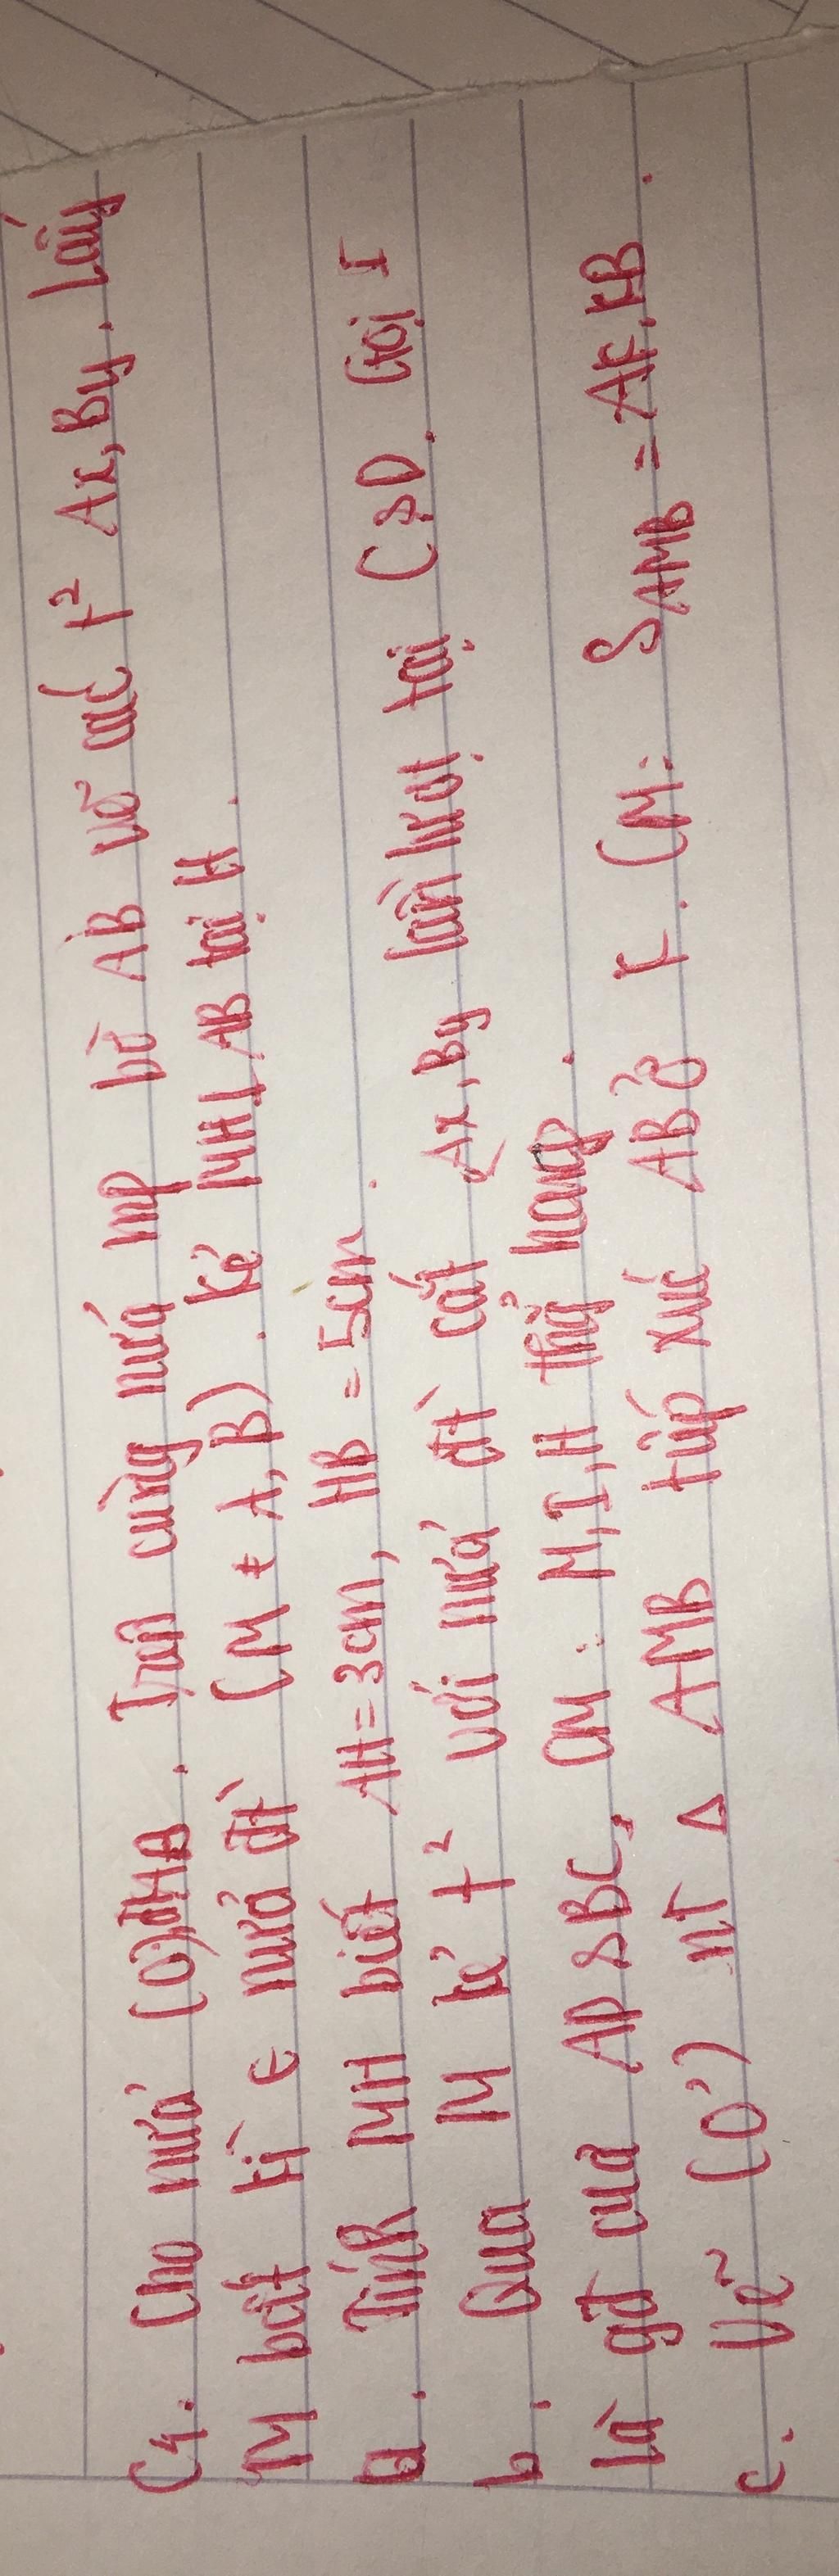 C4. Cho nửa (O) đk AB. Trên cùng nửa mp bờ AB vẽ 2 t² Ax, By. Lấy
M bất kì ∈ nửa đt (M ≠ A, B). Kẻ MH ⊥ AB tại H.
a. Tính MH biết AH = 3cm, HB = 5cm.
b. Qua M kẻ t² với nửa đt cắt Ax, By lần lượt tại C & D. Gọi I
là gđ của AD & BC. CM: M, I, H thg hàng.
c. Vẽ (O') nt Δ AMB tiếp xúc AB ở F. CM: S AMB = AF.FB.